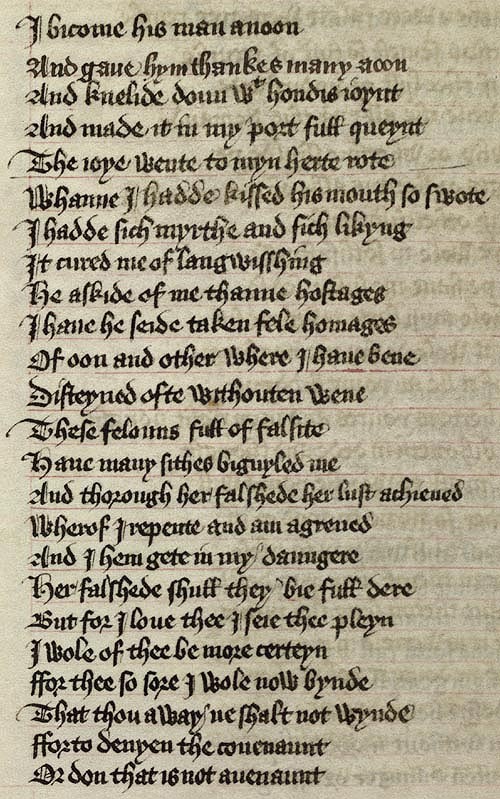 I bicome his man anoon
And gaue hym thankes many aoon
And knelide doun wt hondis ioynt
And made it in my port full queynt
The ioye wente to myn herte rote
Whanne I hadde kissed his mouth so swote
I hadde sich myrthe and sich likyng
It cured me of langwisshing
He askide of me thanne hostages
I haue he seide taken fele homages
Of oon and other where I haue bene
Disteyned ofte withouten wene
These felouns full of falsite
Haue many sithes biguyled me
And thorough her falshede her lust achieued
Wherof I repente and am agreued
And I hem gete in my daungere
Her falshede shull they bie full dere
But for I loue thee I seie thee pleyn
I wole of thee be more certeyn
ffor thee so sore I wole now bynde
That thou away ne shalt not wynde
fforto denyen the couenaunt
Or don that is not auenaunt